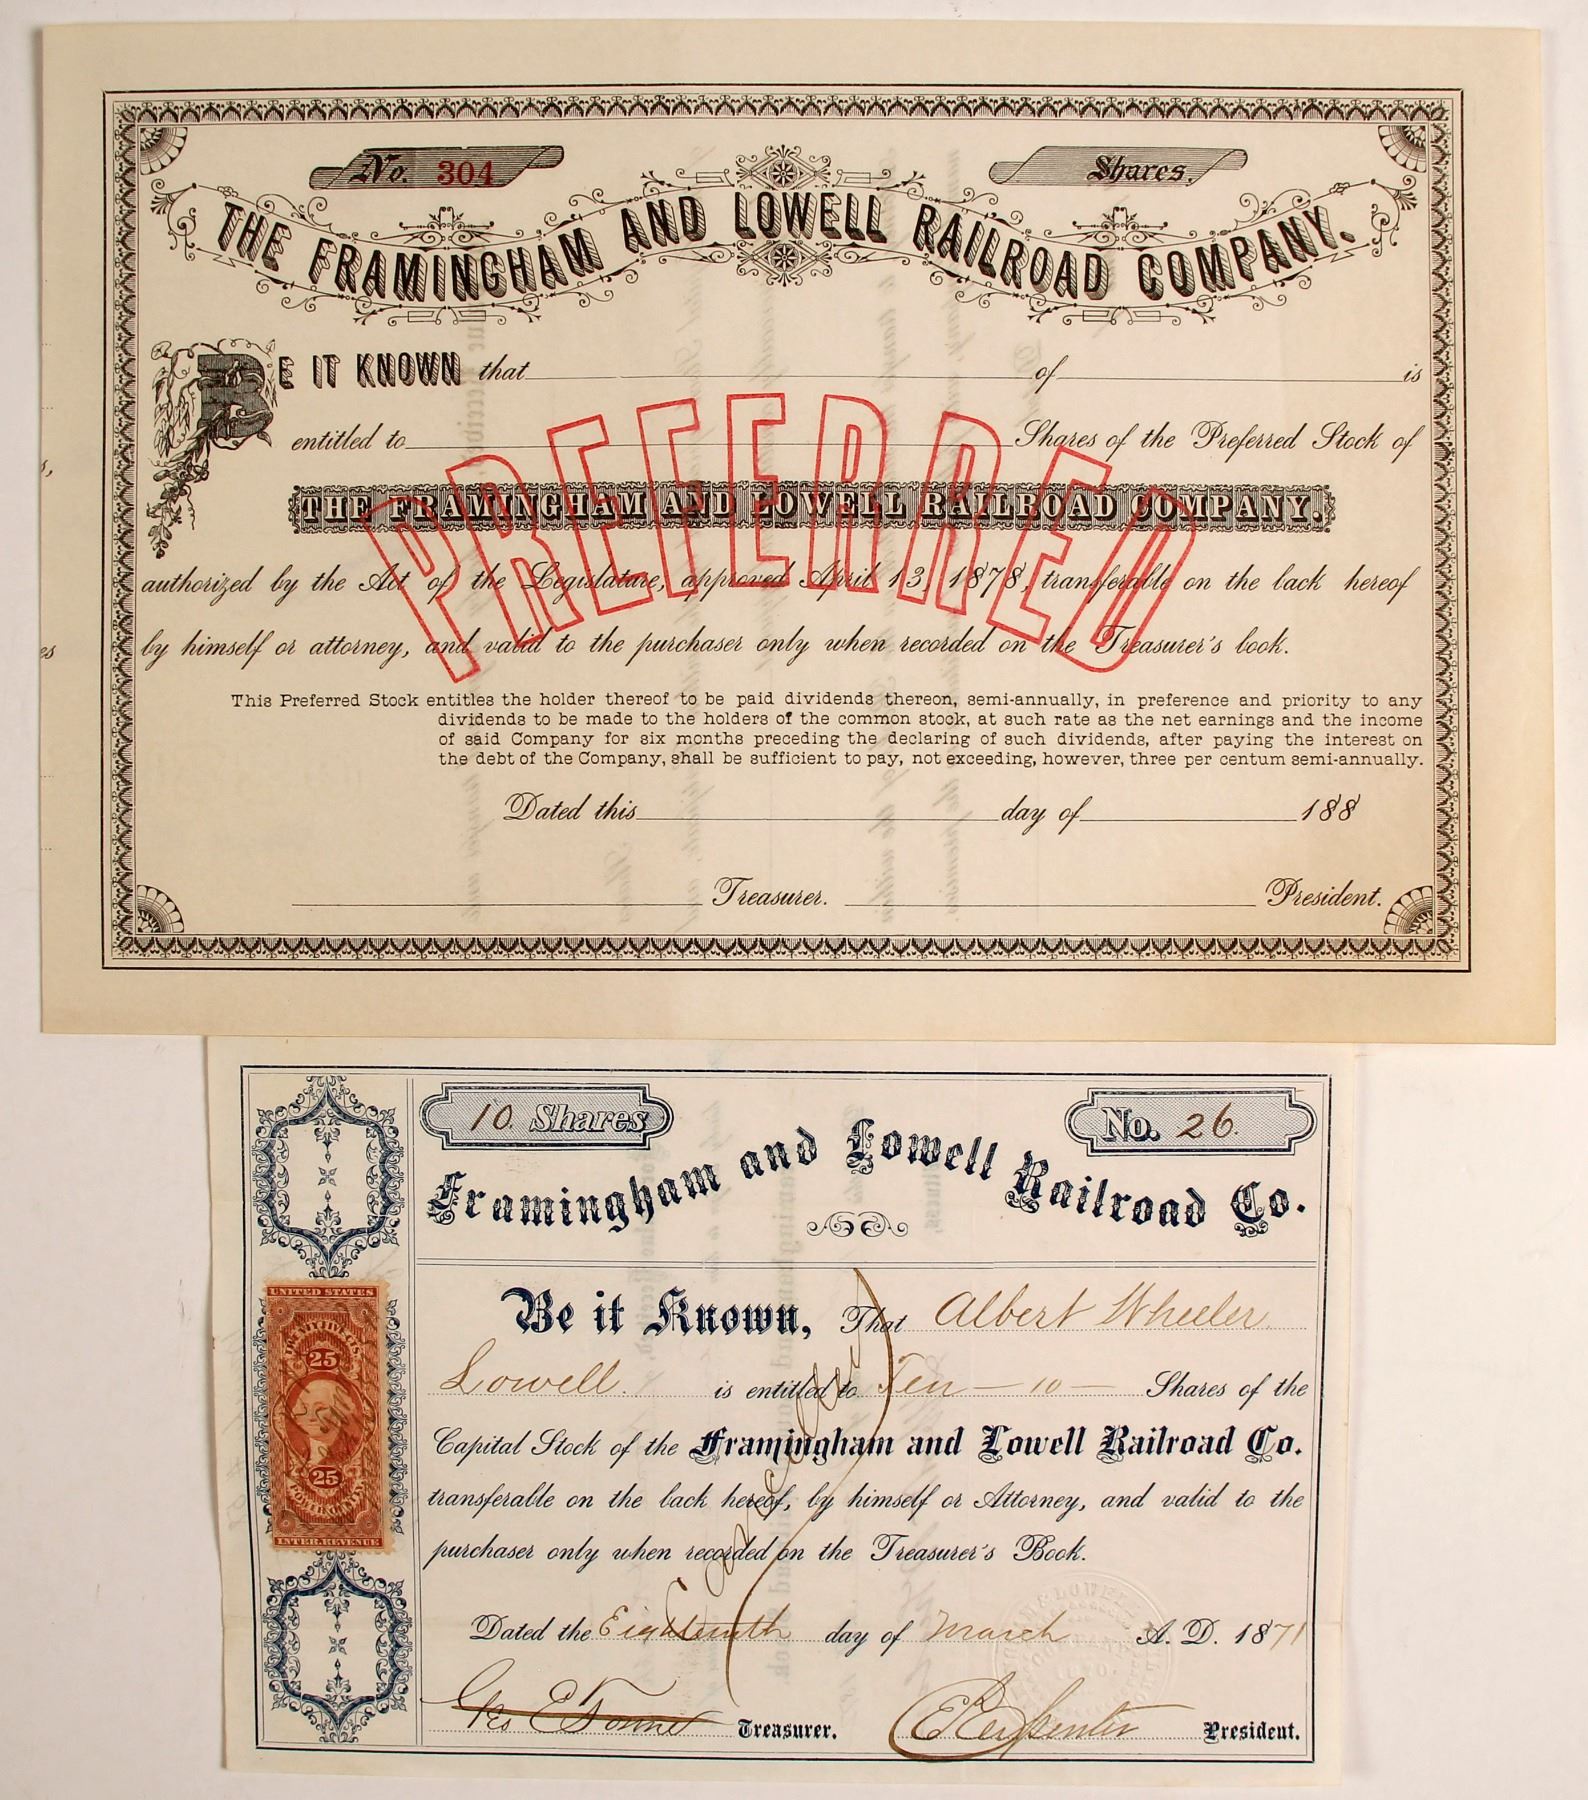 No. 304
Shares.
THE FRAMINGHAM AND LOWELL RAILROAD COMPANY.
BE IT KNOWN that of is
entitled to Shares of the Preferred Stock of
THE FRAMINGHAM AND LOWELL RAILROAD COMPANY.
PREFERRED
authorized by the Act of the Legislature, approved April 13, 1878, transferable on the back hereof
by himself or attorney, and valid to the purchaser only when recorded on the Treasurer's book.
This Preferred Stock entitles the holder thereof to be paid dividends thereon, semi-annually, in preference and priority to any
dividends to be made to the holders of the common stock, at such rate as the net earnings and the income
of said Company for six months preceding the declaring of such dividends, after paying the interest on
the debt of the Company, shall be sufficient to pay, not exceeding, however, three per centum semi-annually.
Dated this day of 188
Treasurer. President.
10. Shares
No. 26.
Framingham and Lowell Railroad Co.
Be it Known, That Albert Wheeler
Lowell. is entitled to Ten — 10 — Shares of the
Capital Stock of the Framingham and Lowell Railroad Co.
transferable on the back hereof, by himself or Attorney, and valid to the
purchaser only when recorded on the Treasurer's Book.
Dated the Eighteenth day of March A. D. 1871
Geo E Treasurer. Carpenter President.
UNITED STATES
25
25
INTER. REVENUE